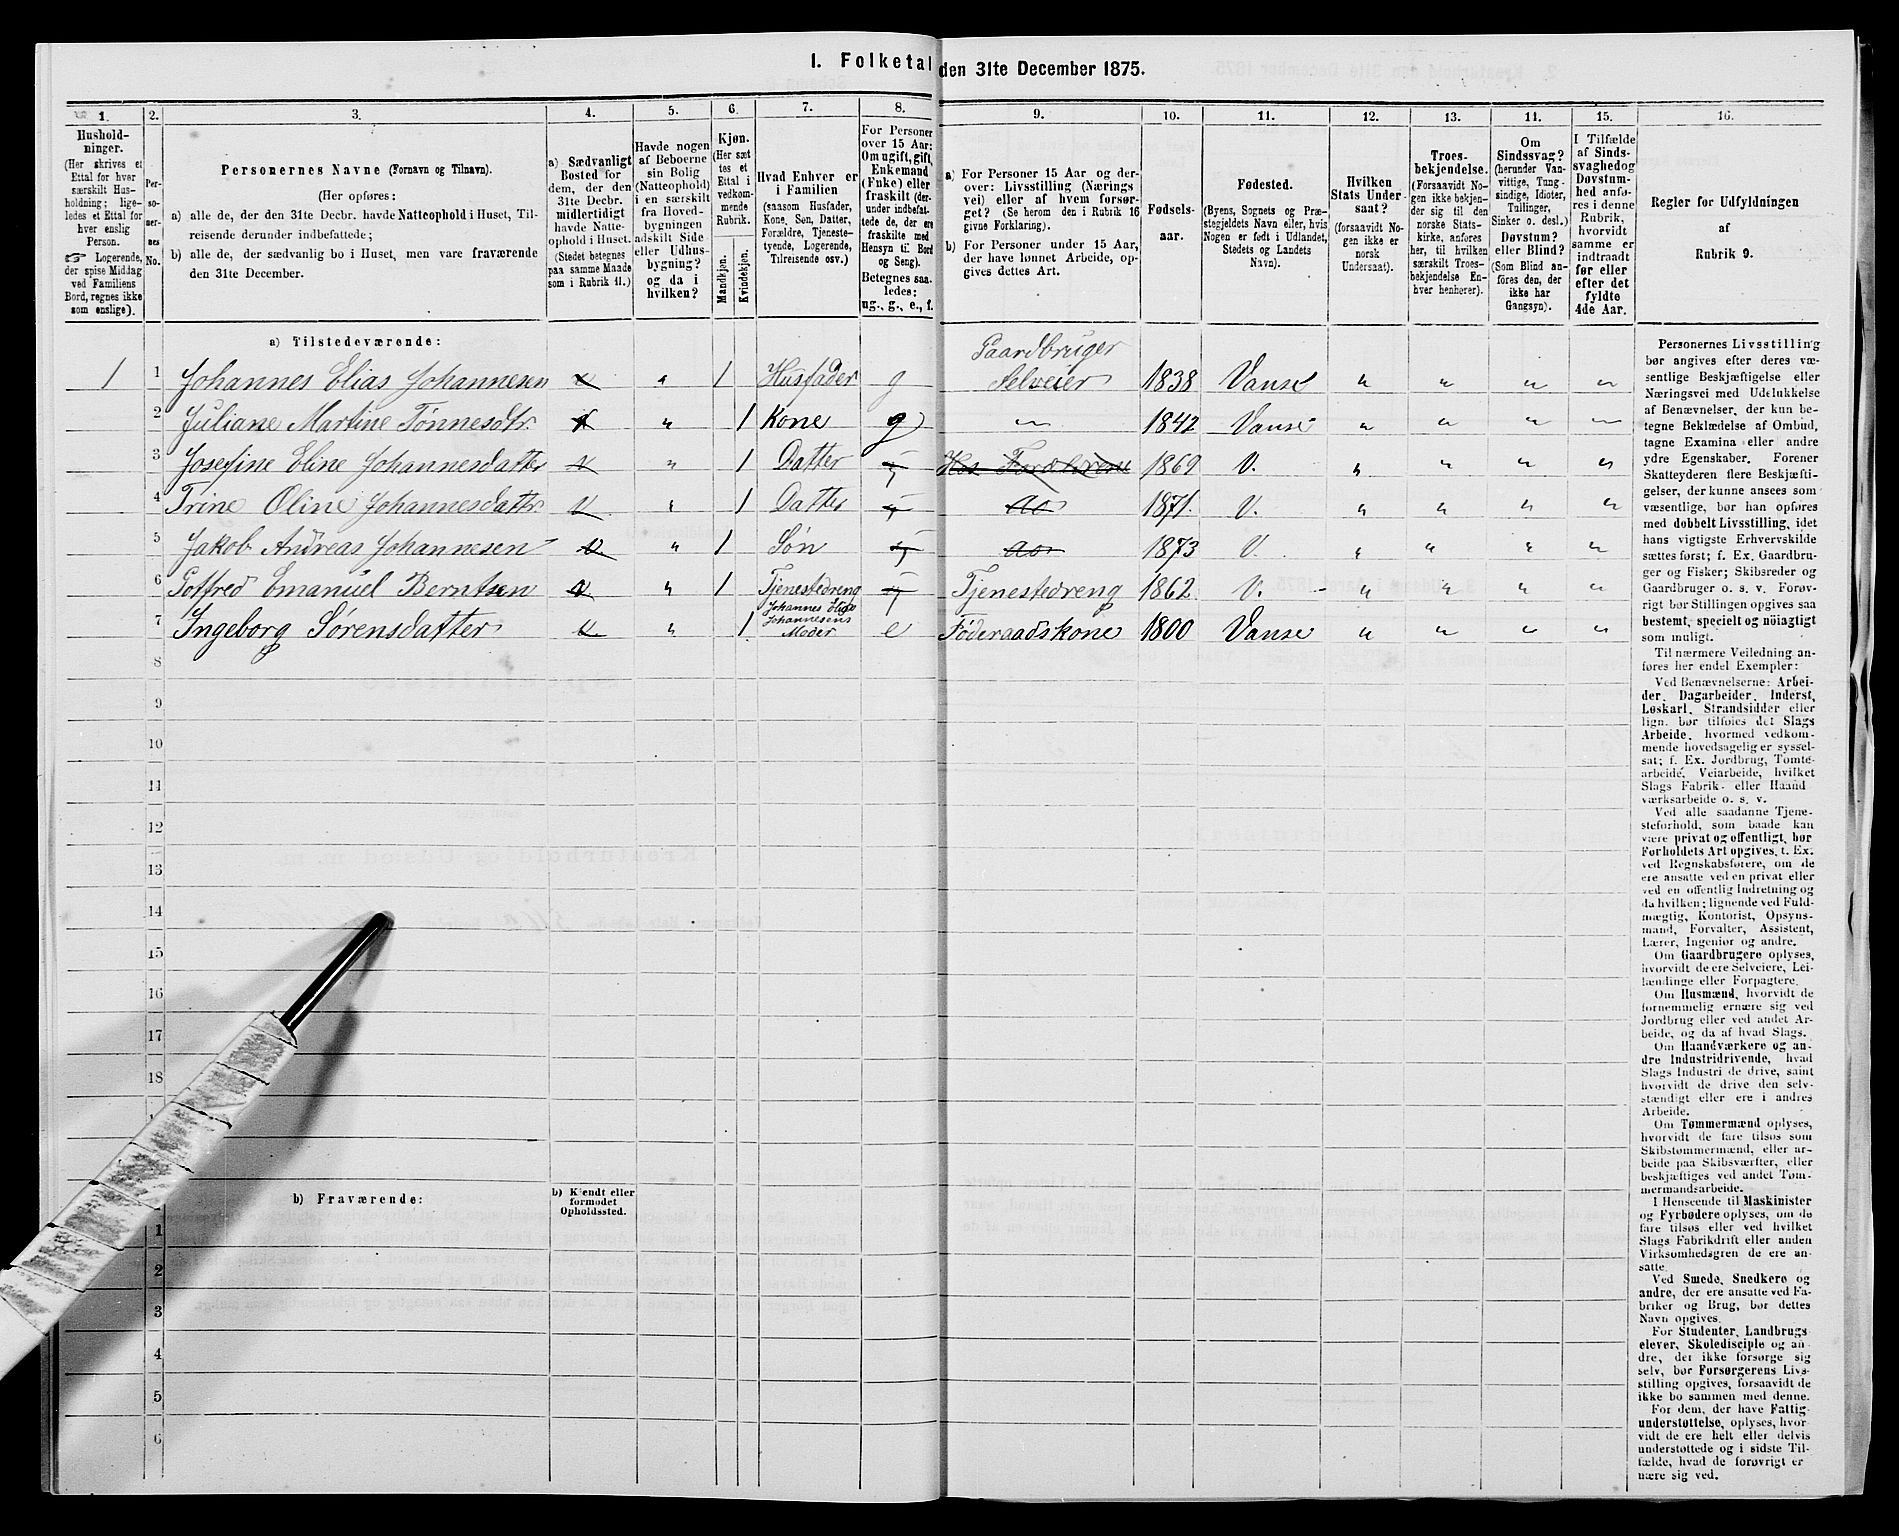 I. Folketal den 31te December 1875.
1. 2. 3. 4. 5. 6. 7. 8. 9. 10. 11. 12. 13. 14. 15. 16.
Hushold-
ninger.
(Her skrives et
Ettal for hver
særskilt Hus-
holdning; lige-
ledes et Ettal for
hver enslig
Person.
☞ Logerende,
der spise Middag
ved Familiens
Bord, regnes ikke
som enslige).
Per-
so-
ner-
nes
No.
Personernes Navne (Fornavn og Tilnavn).
(Her opføres:
a) alle de, der den 31te Decbr. havde Natteophold i Huset, Til-
reisende derunder indbefattede;
b) alle de, der sædvanlig bo i Huset, men vare fraværende
den 31te December.
a) Sædvanligt
Bosted for
dem, der den
31te Decbr.
midlertidigt
havde Natte-
ophold i Huset.
(Stedet betegnes
paa samme Maade
som i Rubrik 11.)
Havde nogen
af Beboerne
sin Bolig
(Natteophold)
i en særskilt
fra Hoved-
bygningen
adskilt Side
eller Udhus-
bygning?
og da i
hvilken?
Kjøn.
(Her sæt
tes et
Ettal i
vedkom-
mende
Rubrik.
Mandkjøn.
Kvindekjøn.
Hvad Enhver er
i Familien
(saasom Husfader,
Kone, Søn, Datter,
Forældre, Tjeneste-
tyende, Logerende,
Tilreisende osv.)
For Personer
over 15 Aar:
Om ugift, gift,
Enkemand
(Enke) eller
fraskilt (der-
under indbefat-
tede de, der ere
fraskilte med
Hensyn til Bord
og Seng).
Betegnes saa-
ledes:
ug., g., e., f.
a) For Personer 15 Aar og der-
over: Livsstilling (Nærings
vei) eller af hvem forsør-
get? (Se herom den i Rubrik 16
givne Forklaring).
b) For Personer under 15 Aar,
der have lønnet Arbeide, op-
gives dettes Art.
Fødsels-
aar.
Fødested.
(Byens, Sognets og Præ-
stegjeldets Navn eller, hvis
Nogen er født i Udlandet,
Stedets og Landets
Navn).
Hvilken
Stats Under-
saat?
(forsaavidt No-
gen ikke er
norsk
Undersaat).
Troes-
bekjendelse.
(Forsaavidt No-
gen ikke bekjen-
der sig til den
norske Stats-
kirke, anføres
her, til hvilken
særskilt Troes-
bekjendelse En-
hver henhører).
Om
Sindssvag?
(herunder Van-
vittige, Tung-
sindige, Idioter,
Tullinger,
Sinker o. desl.)
Døvstum?
eller Blind?
(Som Blind an-
føres den, der
ikke har
Gangsyn).
I Tilfælde
af Sinds-
svaghed og
Døvstum-
hed anfø-
res i denne
Rubrik,
hvorvidt
samme er
indtraadt
før eller
efter det
fyldte
4de Aar.
Regler for Udfyldningen
af
Rubrik 9.
a) Tilstedeværende:
1 1 Johannes Elias Johannesen " 1 Husfader g Gaardbruger Selveier 1838 Vanse " " " "
2 Juliane Martine Tønnesdtr. " 1 Kone g " 1842 Vanse " " " "
3 Josefine Eline Johannesdatter " 1 Datter Hos Forældrene 1869 V. " " " "
4 Trine Oline Johannesdattr " 1 Datter do 1871. V. " " " "
5 Jakob Andreas Johannesen " 1 Søn do 1873 V. " " " "
6 Gotfred Emanuel Berntsen " 1 Tjenestedreng Tjenestedreng 1862 V. " " " "
7 Ingeborg Sørensdatter " 1 Johannes Elias Johannesens Moder e Føderaadskone 1800 Vanse " " " "
8
9
10
11
12
13
14
15
16
17
18
b) Fraværende:
b) Kjendt eller
formodet
Opholdssted.
1
2
3
4
5
6
Personernes Livsstilling
bør angives efter deres væ-
sentlige Beskjæftigelse eller
Næringsvei med Udelukkelse
af Benævnelser, der kun be-
tegne Beklædelse af Ombud,
tagne Examina eller andre
ydre Egenskaber. Forener
Skatteyderen flere Beskjæfti-
gelser, der kunne ansees som
væsentlige, bør han opføres
med dobbelt Livsstilling, idet
hans vigtigste Erhvervskilde
sættes først; f. Ex. Gaardbru-
ger og Fisker; Skibsreder og
Gaardbruger o. s. v. Forøv-
rigt bør Stillingen opgives saa
bestemt, specielt og nöiagtigt
som muligt.
Til nærmere Veiledning an-
føres her endel Exempler:
Ved Benævnelserne: Arbei-
der, Dagarbeider, Inderst,
Løskarl, Strandsidder eller
lign. bør tilføies det Slags
Arbeide, hvormed vedkom-
mende hovedsagelig er syssel-
sat; f. Ex. Jordbrug, Tomte-
arbeide, Veiarbeide, hvilket
Slags Fabrik- eller Haand
værksarbeide o. s. v.
Ved alle saadanne Tjene-
steforhold, som baade kan
være privat og offentligt, bør
Forholdets Art opgives, t. Ex.
ved Regnskabsførere, om de
ere ansatte ved en privat eller
ved en offentlig Indretning og
da hvilken; lignende ved Fuld-
mægtig, Kontorist, Opsyns-
mand, Forvalter, Assistent,
Lærer, Ingeniør og andre.
Om Gaardbrugere oplyses,
hvorvidt de ere Selveiere, Lei-
lændinge eller Forpagtere.
Om Husmænd, hvorvidt de
fornemmelig ernære sig ved
Jordbrug eller ved andet Ar-
beide, og da af hvad Slags.
Om Haandværkere og an-
dre Industridrivende, hvad
Slags Industri de drive, samt
hvorvidt de drive den selv-
stændigt eller ere i andres
Arbeide.
Om Tømmermænd oplyses,
hvorvidt de fare tilsøs som
Skibstømmermænd, eller ar-
beide paa Skibsværfter, eller
beskjæftiges ved andet Tøm-
mermandsarbeide.
I Henseende til Maskinister
og Fyrbødere oplyses, om de
fare tilsøs eller ved hvilket
Slags Fabrikdrift eller anden
Virksomhedsgren de ere an-
satte.
Ved Smede, Snedkere og
andre, der ere ansatte ved Fa-
briker og Brug, bør dettes
Navn opgives.
For Studenter, Landbrugs
elever, Skoledisciple og an-
dre, der ikke forsørge sig
selv, bør Forsørgerens Livs-
stilling opgives, forsaavidt de
ikke bo sammen med denne.
For dem, der have Fattig-
understøttelse, oplyses, hvor-
vidt de ere helt eller delvis
understøttede og i sidste Til-
fælde, hvad de forøvrigt er
nære sig ved.